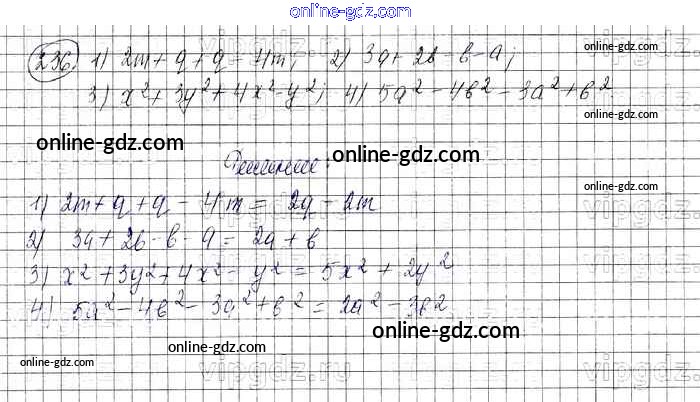 online-gdz.com
236. 1) 2m + q + q - 4m; 2) 3a + 2b - b - a;
online-gdz.com
3) x² + 3y² + 4x² - y²; 4) 5a² - 4b² - 3a² + b²
online-gdz.com
online-gdz.com
Решение:
online-gdz.com
1) 2m + q + q - 4m = 2q - 2m
2) 3a + 2b - b - a = 2a + b
3) x² + 3y² + 4x² - y² = 5x² + 2y²
4) 5a² - 4b² - 3a² + b² = 2a² - 3b²
online-gdz.com
online-gdz.com
online-gdz.com
online-gdz.com
vipgdz.ru